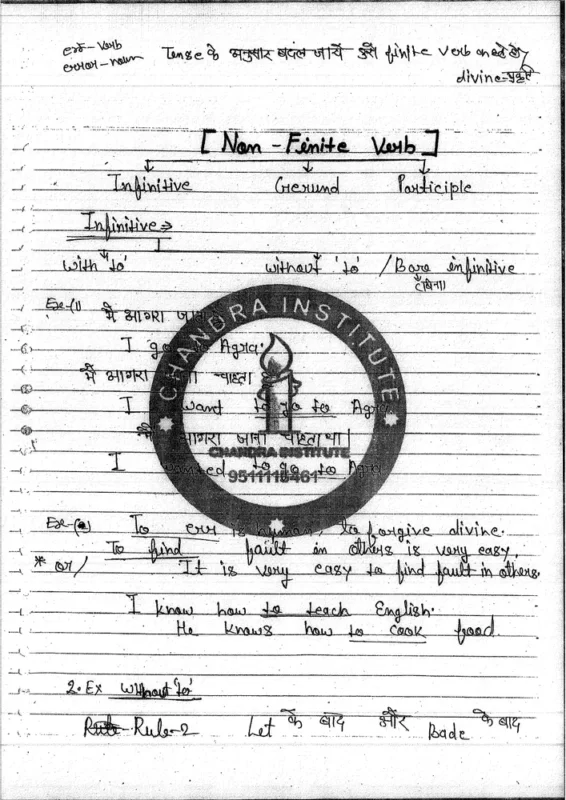 err - verb
error - noun
Tense के अनुसार बदल जाये उसे finite verb कहते है
divine - प्रकृति
[ Non - Finite Verb ]
Infinitive Gerund Participle
Infinitive ⇒
with 'to' without 'to' / Bare infinitive
(बिना)
Ex-(1) मैं आगरा
I go to Agra.
मैं आगरा चाहता
I want to go to Agra
मैं आगरा जाना चाहता था |
I wanted to go to Agra
CHANDRA INSTITUTE
CHANDRA INSTITUTE
9511115461
Ex-(2) To err is human, to forgive divine.
To find fault in others is very easy.
* or / It is very easy to find fault in others.
I know how to teach English.
He knows how to cook food.
2. Ex without 'to'
Rule-2 Let के बाद और Bade के बाद